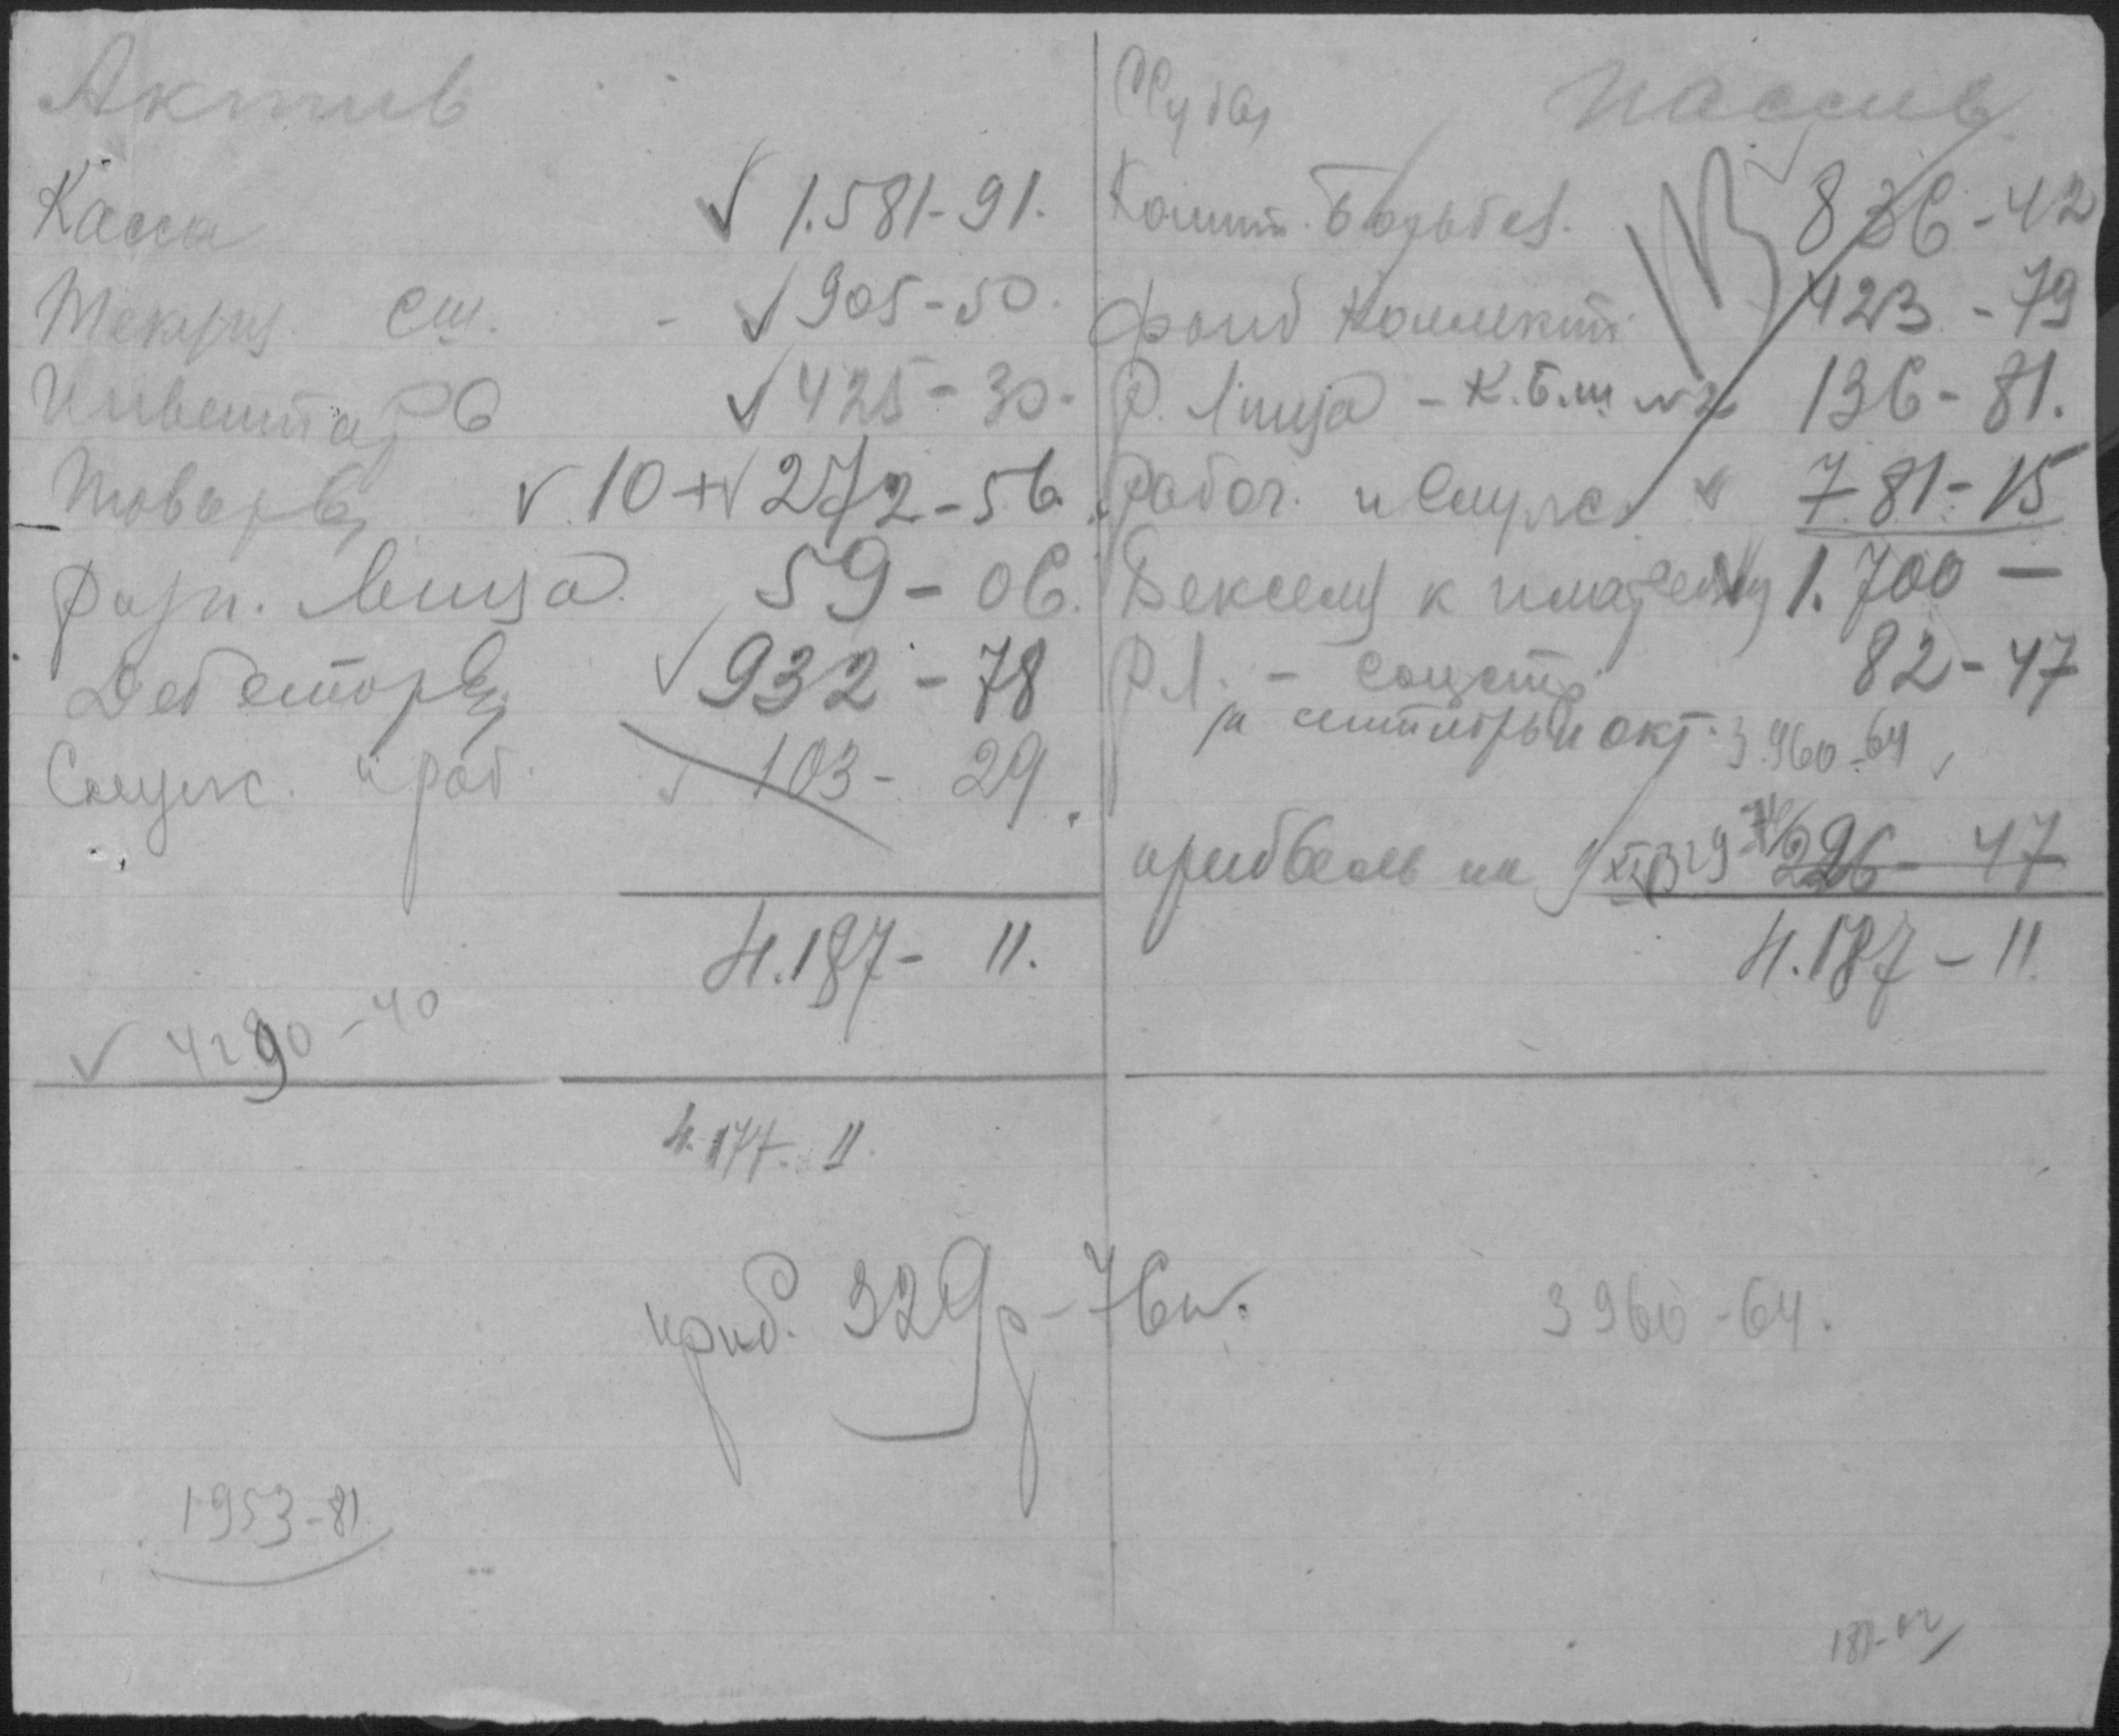 Актив
Касса 1.581-91.
Текущ. сч. - 905-50.
Инвентарь 425-30-
Товары 10+272-56
Разн. Лица 59-06.
Дебеторы 932-78
Служ. и раб. 103-29.
4.187-11.
4290-40
4.177-11.
приб. 329р-76к.
1953-81
Пассив
Ссуда
Комит. Борьбы. 836-42
фонд Коллект. 423-79
Р. Лица - К.б.ш. №2 136-81.
Рабоч. и Служ. 781-15
Векселя к платежу 1.700-
Р.Л. - Соцст. 82-47
за октб. и окт. 3.960-64
прибыль на 296-47
4.187-11
3960-64.